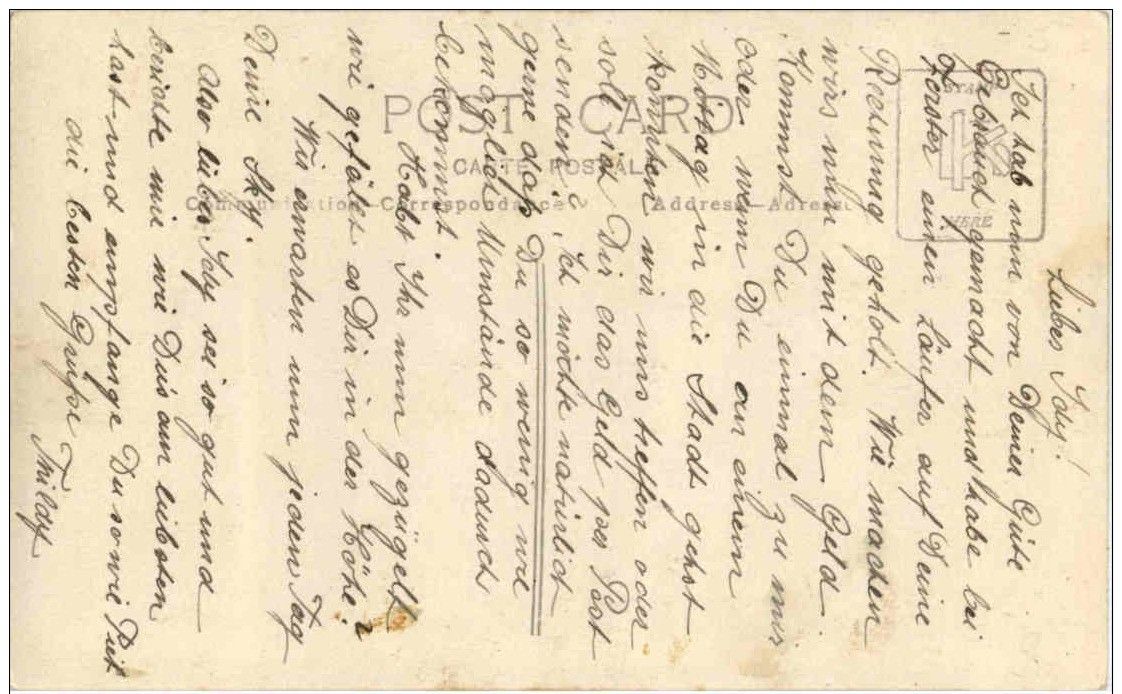 Liebes Idy!
Ich hab nun von Deiner Güte
Gebrauch gemacht und habe bei
Forster einen Läufer auf Deine
Rechnung geholt. Wie machen
wirs nun mit dem Geld.
Kommst Du einmal zu mir
oder wenn Du an einem
Mittag in die Stadt gehst
können wir uns treffen oder
soll ich Dir das Geld per Post
senden? Ich möchte natürlich
gerne daß Du so wenig wie
möglich Umstände dadurch
bekommst.
Habt Ihr nun gezügelt
wie gefällt es Dir in der Höhe?
Wir warten nun jeden Tag
Deine
Also liebes Idy sei so gut und
berichte mir wie Du's am liebsten
hast und empfange Du sowie
die besten Grüße
POST CARD
CARTE POSTALE
Communication–Correspondance
Address–Adresse
STAMP
HERE